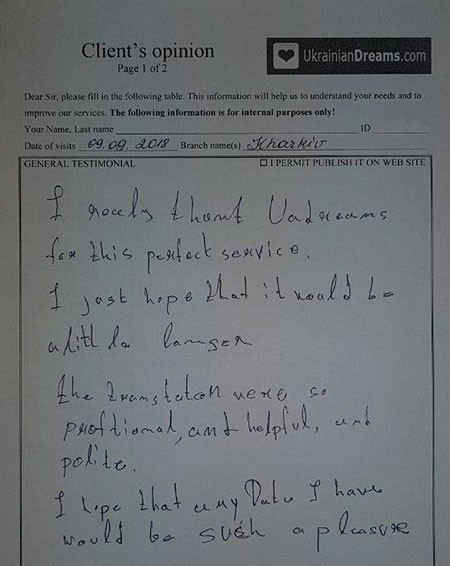 Client's opinion
Page 1 of 2
UkrainianDreams.com
Dear Sir, please fill in the following table. This information will help us to understand your needs and to
improve our services. The following information is for internal purposes only!
Your Name, Last name ID
Date of visits 09.09.2018 Branch name(s) Kharkiv
GENERAL TESTIMONIAL
☐ I PERMIT PUBLISH IT ON WEB SITE
I thank Uadreams
for this perfect service.
I just hope that it would be
a litl longer
the were so
and helpful, and
polite.
I hope that any Date I have
would be such a pleasure